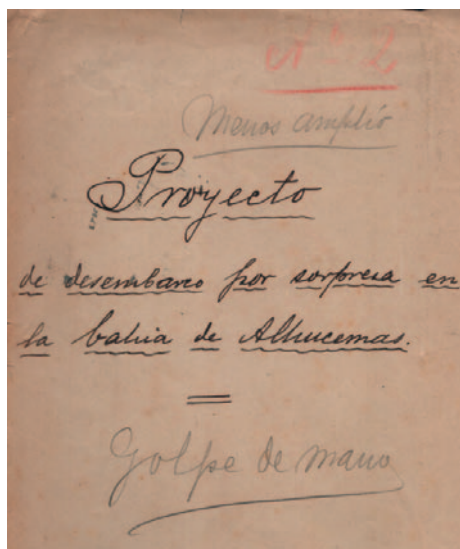 Nº 2
Menos amplio
Proyecto
de desembarco por sorpresa en
la bahia de Alhucemas.
Golpe de mano